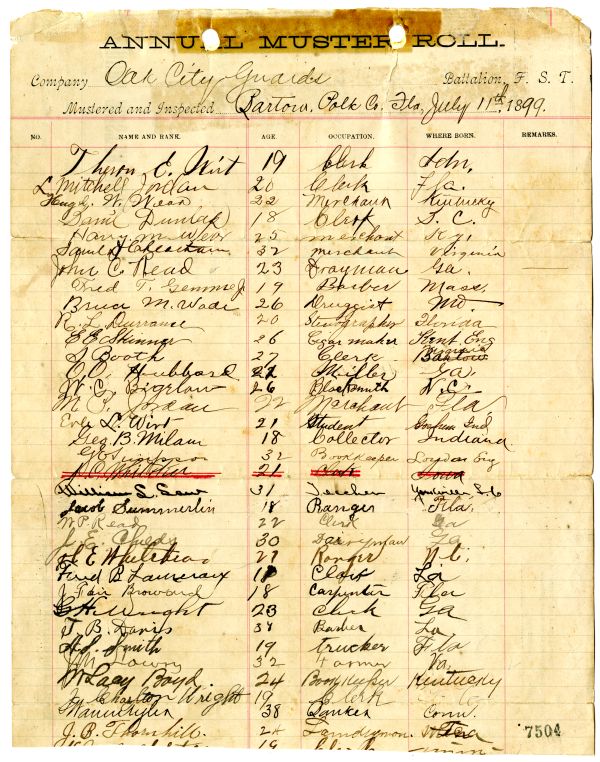 ANNUAL MUSTER ROLL.
Company Oak City Guards Battalion, F. S. T.
Mustered and Inspected Bartow, Polk Co. Fla, July 11th 1899.
NO. NAME AND RANK. AGE. OCCUPATION. WHERE BORN. REMARKS.
Theron E. Wirt 19 Clerk
L Mitchell Jordan 20 Clerk Fla.
Hugh W. Wear 22 Merchant Kentucky
David Dunlap 18 Clerk S. C.
Harry M Wear 25 merchant Ky.
32 merchant Virginia
John C. Read 23 Drayman Ga.
Fred T. 19 Barber Mass.
Bruce M. Wade 26 Druggist Md
R. L. Durrance 20 Stenographer Florida
E E Skinner 26 Cigar maker Kent. Eng
S Booth 27 Clerk Bartow
O. O. Hubbard 22 Miller Ga.
W. C. Bigelow 26 Blacksmith N. C.
M. F. Jordan 22 Merchant Fla
L. Wirt 21 Student Ind
Geo. B. Milam 18 Collector Indiana
G Simpson 32 Bookkeeper London Eng
21
William L. 31 Teacher S. C
Jacob Summerlin 18 Ranger Fla.
W P. Read 22 Clerk Ga
J. E. 30 Dairyman Ga
E Whitehead 21 Ranger N. C.
Fred B Lamoreaux 18 Clerk La
J Fair Broward 18 Carpenter Fla
G H Wright 23 Clerk Ga
J B. Davis 38 Barber La
H. J. Smith 19 trucker Fla
J M 32 Farmer Va.
M Lacy Boyd 24 Bookkeeper Kentucky
Charlton Wright 19 Clerk
38 Banker Conn.
J. B. Thornhill. 24
7504
19